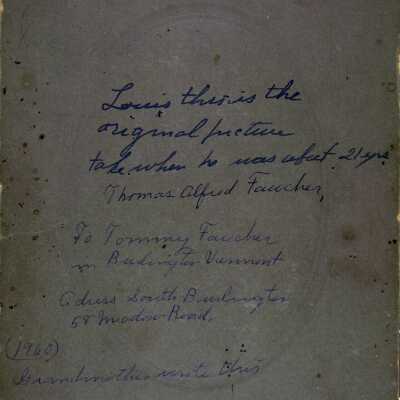 Louis this is the
original picture
take when he was about 21 yrs
Thomas Alfred Faucher,
To Tommy Faucher
in Burlington Vermont
Adress South Burlington
58 Meadow Road,
(1960)
Grandmother wrote this